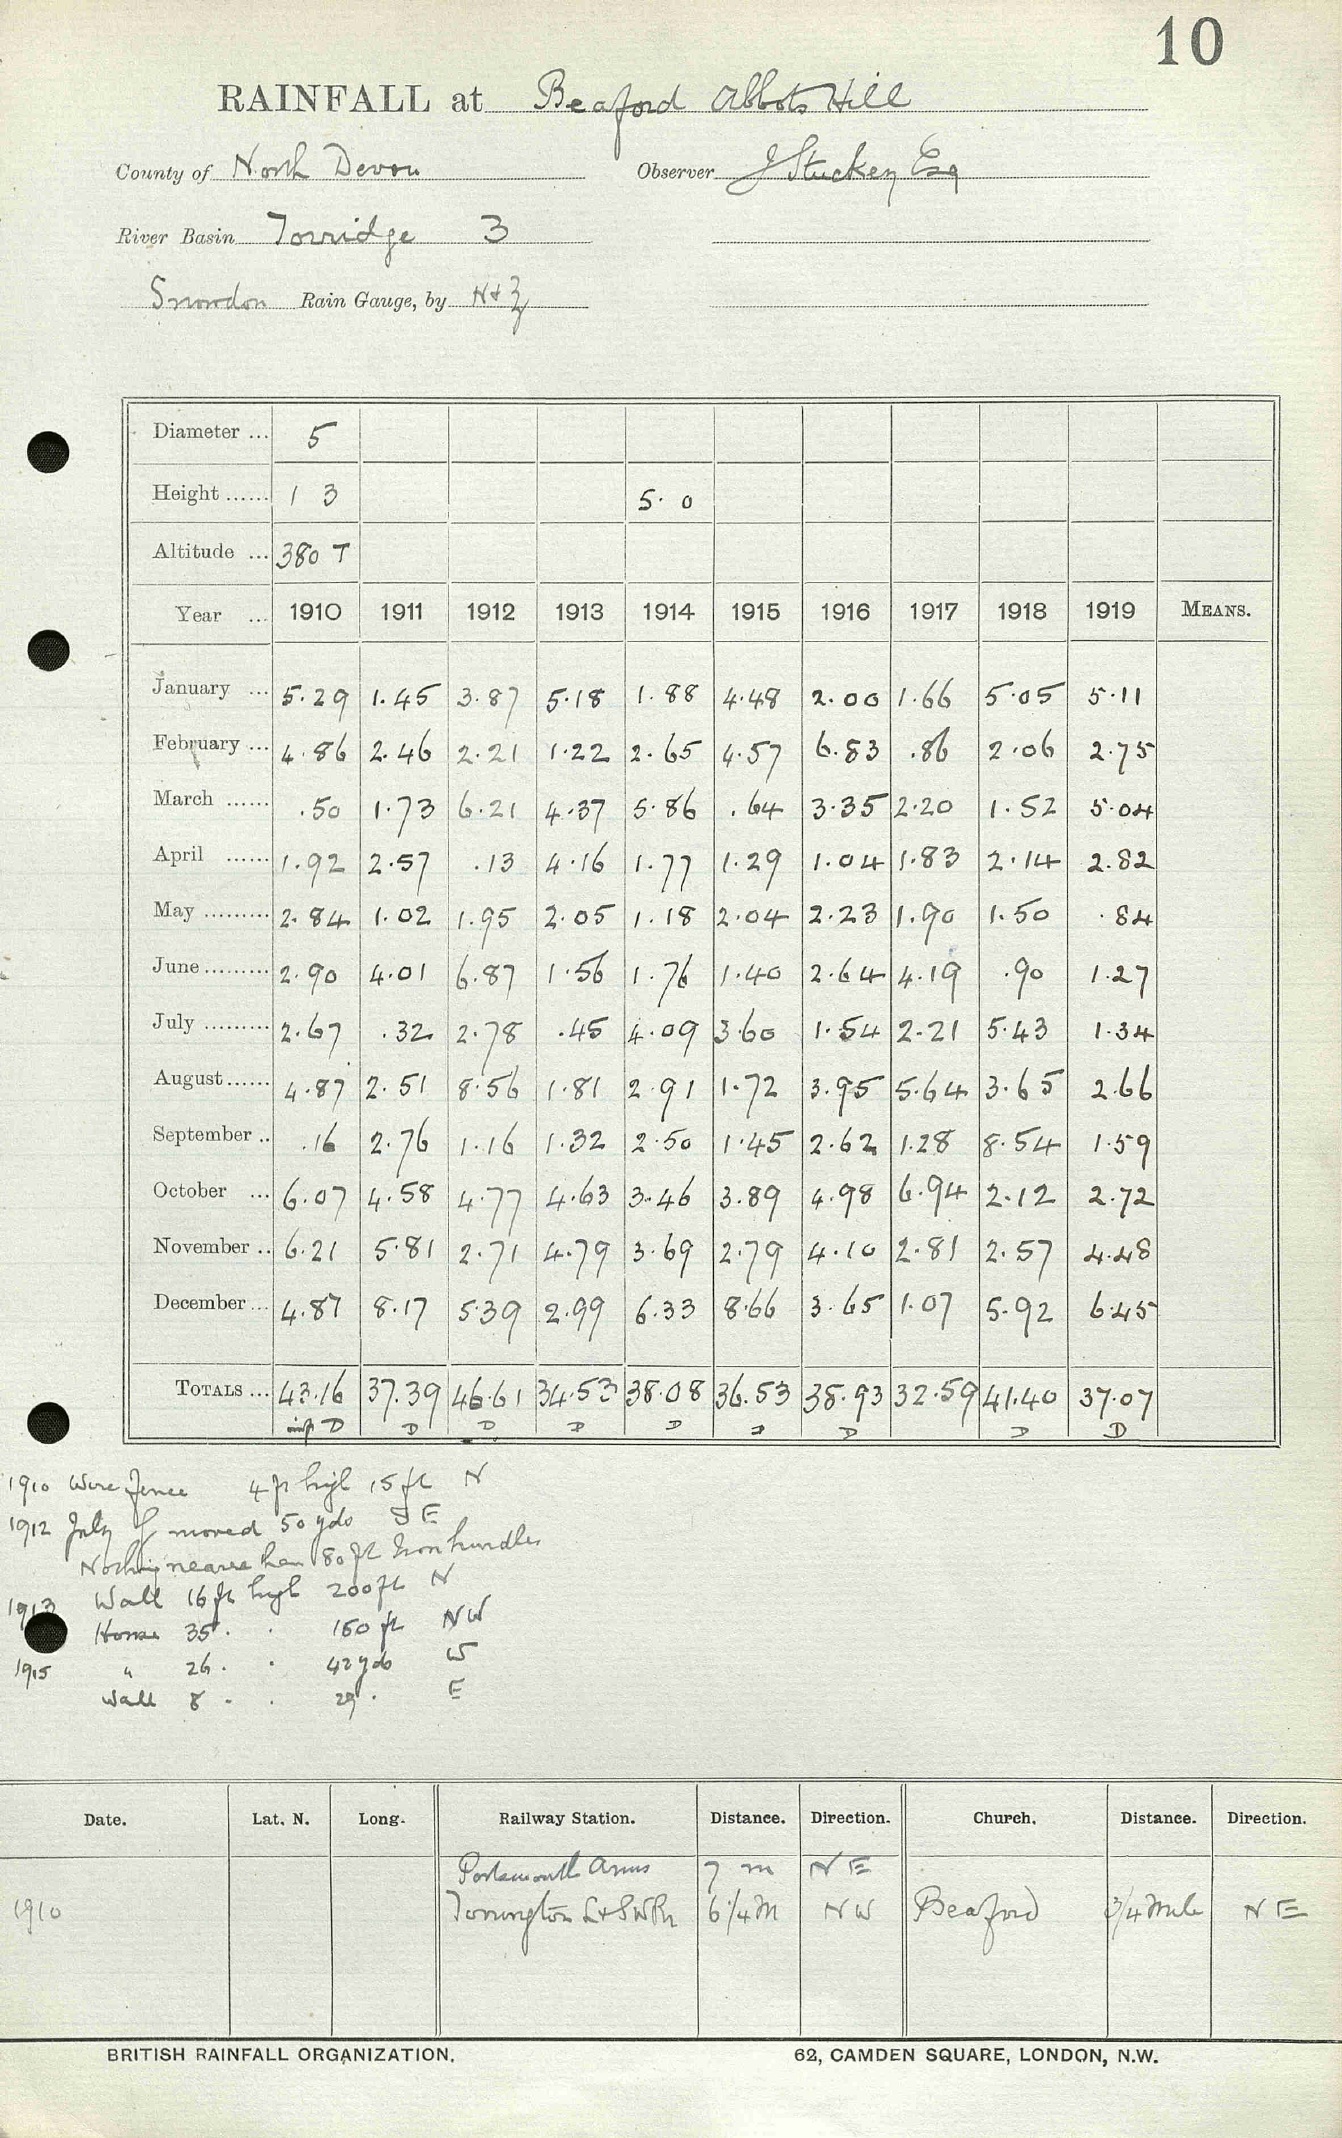 10
RAINFALL at Beaford Abbots Hill
County of North Devon Observer J Stuckey Esq
River Basin Torridge 3
Snowdon Rain Gauge, by N & Z
Diameter ... 5
Height ...... 1 3 5. 0
Altitude ... 380 T
Year ... 1910 1911 1912 1913 1914 1915 1916 1917 1918 1919 MEANS.
January ... 5.29 1.45 3.87 5.18 1.88 4.48 2.00 1.66 5.05 5.11
February ... 4.86 2.46 2.21 1.22 2.65 4.57 6.83 .86 2.06 2.75
March ...... .50 1.73 6.21 4.37 5.86 .64 3.35 2.20 1.52 5.04
April ...... 1.92 2.57 .13 4.16 1.77 1.29 1.04 1.83 2.14 2.82
May ......... 2.84 1.02 1.95 2.05 1.18 2.04 2.23 1.90 1.50 .84
June ......... 2.90 4.01 6.87 1.56 1.76 1.40 2.64 4.19 .90 1.27
July ......... 2.67 .32 2.78 .45 4.09 3.60 1.54 2.21 5.43 1.34
August ...... 4.87 2.51 8.56 1.81 2.91 1.72 3.95 5.64 3.65 2.66
September .. .16 2.76 1.16 1.32 2.50 1.45 2.62 1.28 8.54 1.59
October ... 6.07 4.58 4.77 4.63 3.46 3.89 4.98 6.94 2.12 2.72
November .. 6.21 5.81 2.71 4.79 3.69 2.79 4.10 2.81 2.57 4.48
December ... 4.87 8.17 5.39 2.99 6.33 8.66 3.65 1.07 5.92 6.45
TOTALS ... 43.16 37.39 46.61 34.53 38.08 36.53 38.93 32.59 41.40 37.07
D D D D D D D D D
1910 Wire fence 4 ft high 15 ft N
1912 July moved 50 yds S E
Nothing nearer than 80 ft Iron hurdles
1913 Wall 16 ft high 200 ft N
House 35 . . 150 ft NW
1915 " 26 . . 42 yds W
Wall 8 . . 29 . E
Date. Lat. N. Long. Railway Station. Distance. Direction. Church. Distance. Direction.
Portsmouth Arms 7 m N E
1910 Torrington L & SW Ry 6 1/4 M N W Beaford 3/4 Mile N E
BRITISH RAINFALL ORGANIZATION. 62, CAMDEN SQUARE, LONDON, N.W.